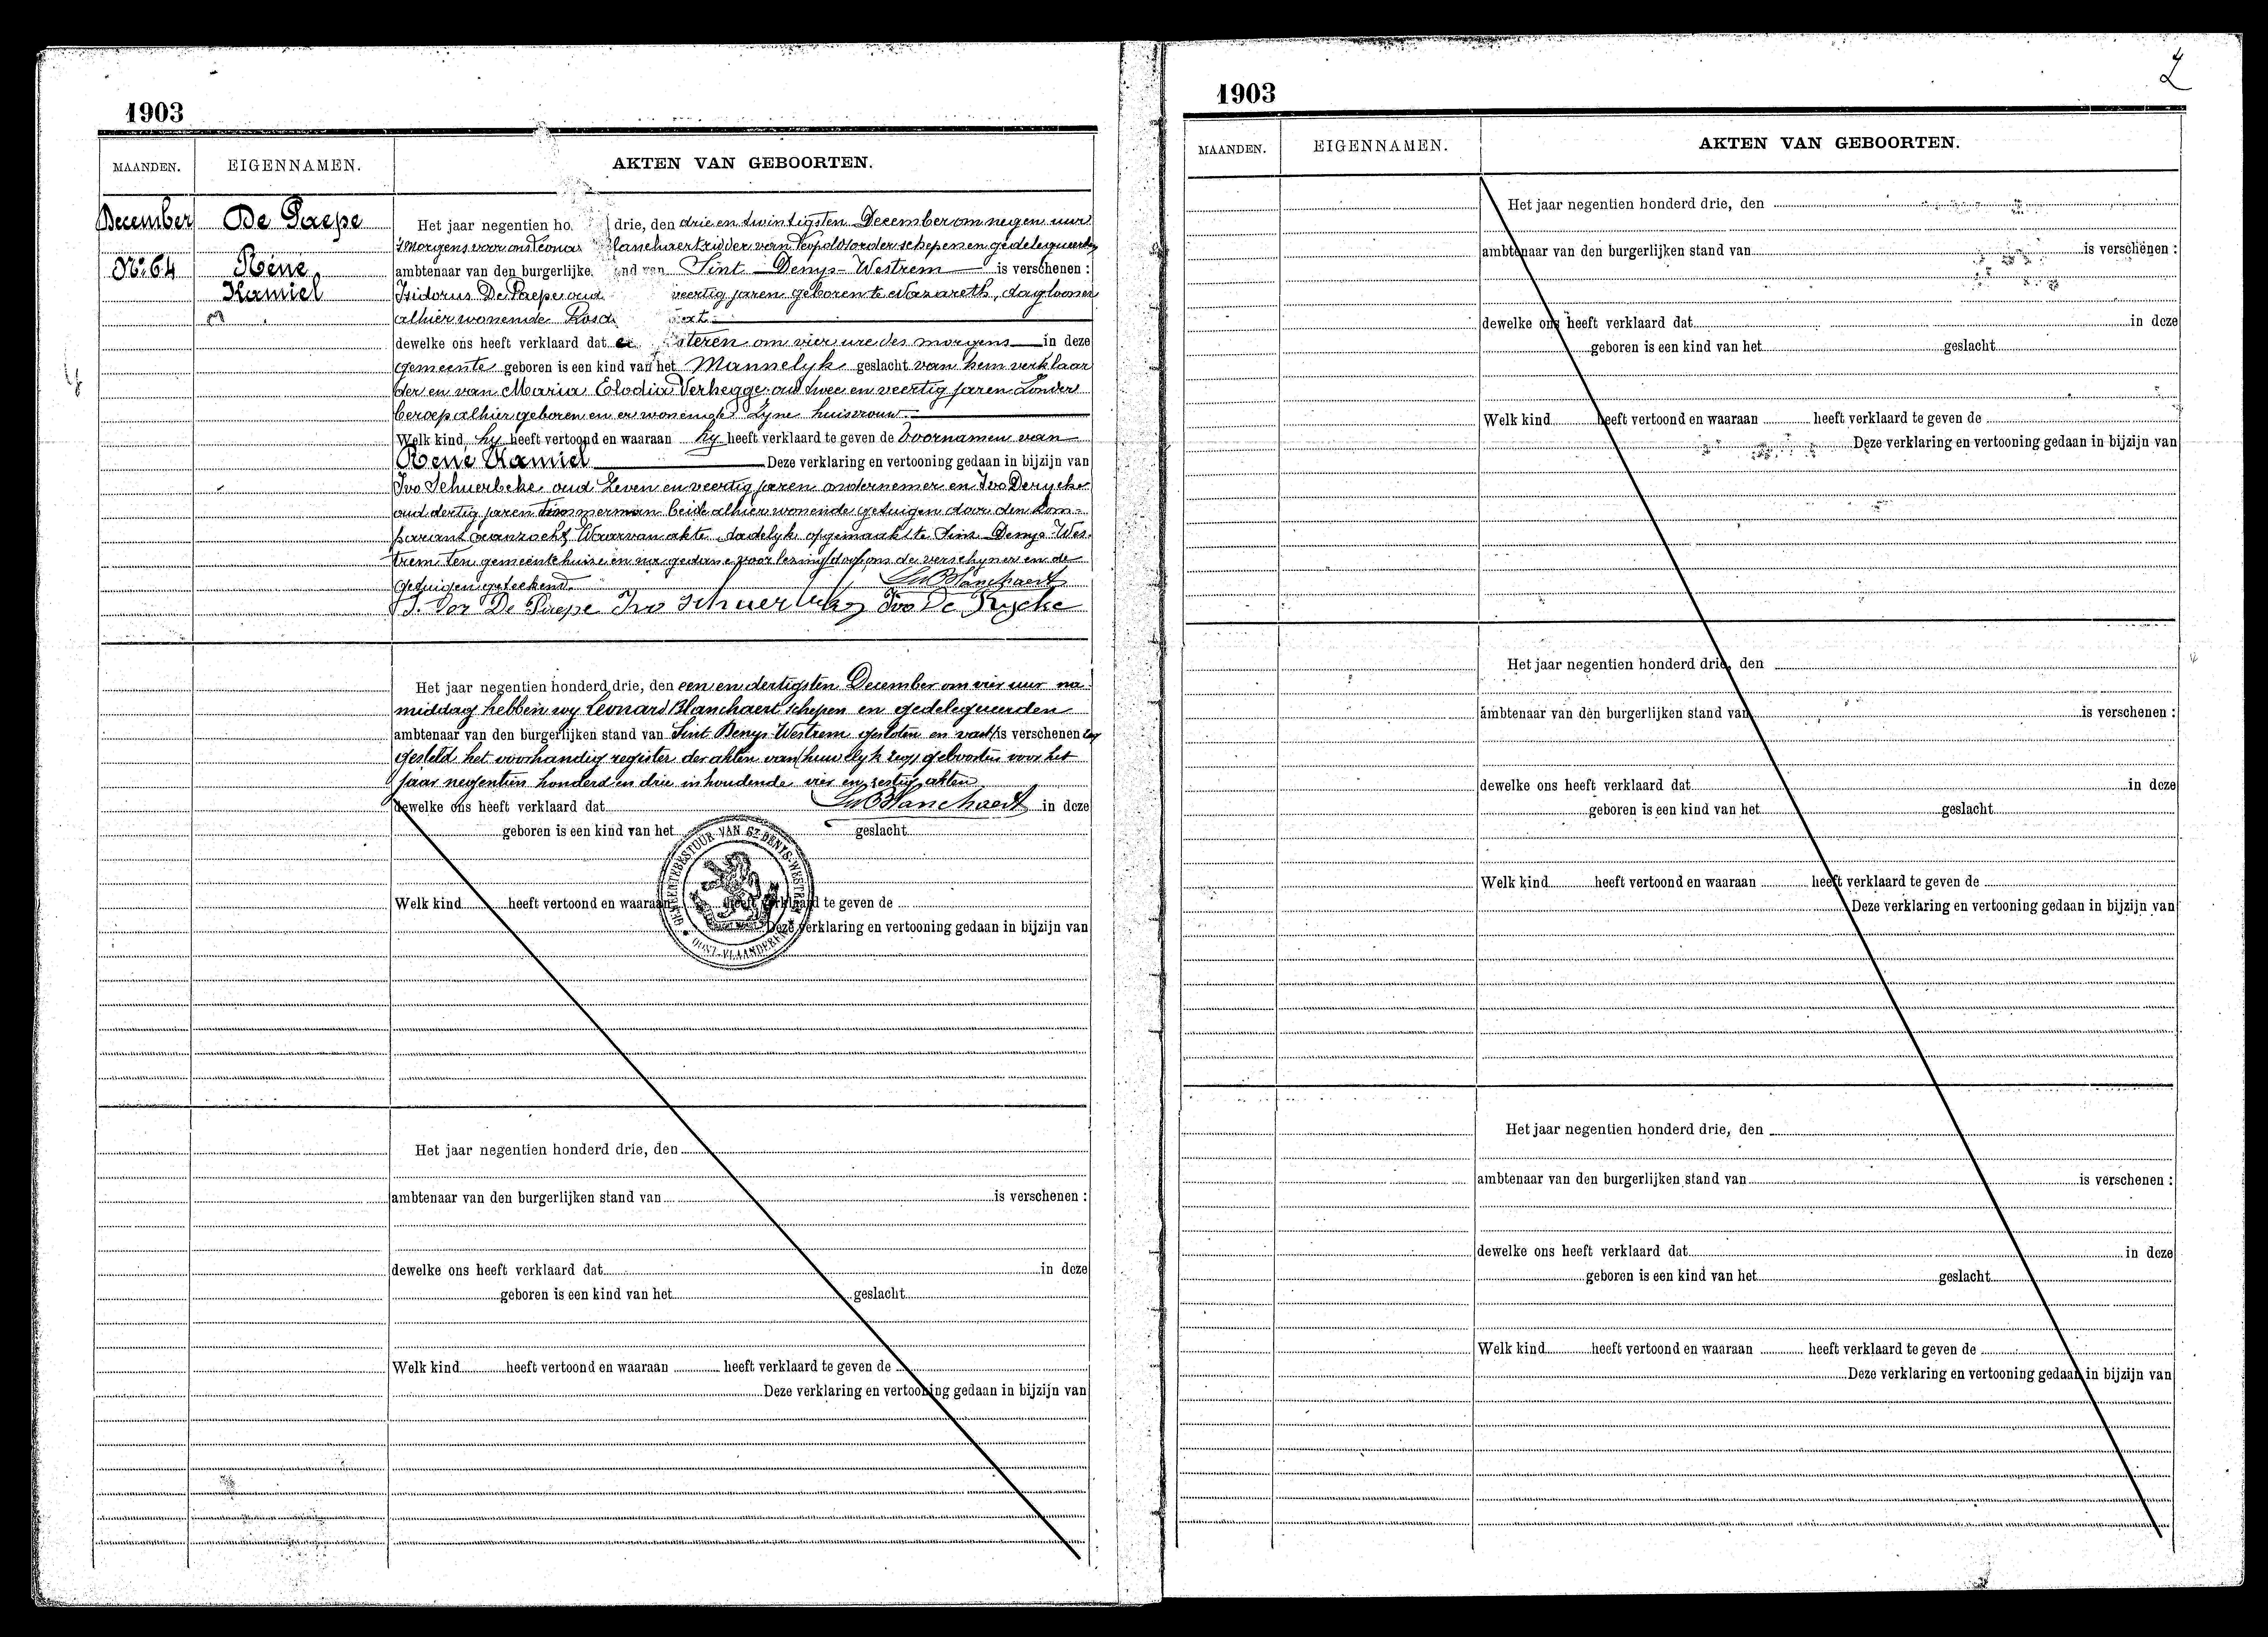 1903
MAANDEN. EIGENNAMEN. AKTEN VAN GEBOORTEN.
December De Paepe
No. 64 Réne
Kamiel
Het jaar negentien ho drie, den drie en twintigsten December om negen uur
's morgens voor ons Leonar lanchaert ridder van Leopoldsorder schepen en gedelegueerden
ambtenaar van den burgerlijke nd van Sint Denys-Westrem is verschenen :
Isidorus De Paepe oud veertig jaren geboren te Nazareth, daglooner
alhier wonende
dewelke ons heeft verklaard dat steren om vier ure des morgens in deze
gemeente geboren is een kind van het Mannelyk geslacht van hem verklaar
der en van Maria Elodia Verhegge oud twee en veertig jaren zonder
beroep alhier geboren en er wonende zyne huisvrouw.
Welk kind hy heeft vertoond en waaraan hy heeft verklaard te geven de Voornamen van
René Kamiel Deze verklaring en vertooning gedaan in bijzijn van
Ivo Schuerbeke oud zeven en veertig jaren ondernemer en Ivo Derycke
oud dertig jaren timmerman beide alhier wonende getuigen door den kom-
parant aanzocht Waarvan akte dadelyk opgemaakt te Sint Denys-Wes-
trem ten gemeentehuize en na gedane voorlezing door ons de verschyner en de
getuigen geteekend. Le Blanchaert
De Paepe Ivo Schuerbeke Ivo De Rycke
Het jaar negentien honderd drie, den een en dertigsten December om vier uur na-
middag hebben wy Leonard Blanchaert schepen en gedelegueerden
ambtenaar van den burgerlijken stand van Sint Denys-Westrem gesloten en vast is verschenen
gesteld het voorhandig register der akten van huwelyk geboorten voor het
jaar negentien honderd en drie inhoudende vier en zestig akten
Le Blanchaert
dewelke ons heeft verklaard dat in deze
geboren is een kind van het geslacht
GEMEENTEBESTUUR VAN ST DENIS-WESTREM
OOST-VLAANDEREN
Welk kind heeft vertoond en waaraan heeft verklaard te geven de
Deze verklaring en vertooning gedaan in bijzijn van
Het jaar negentien honderd drie, den
ambtenaar van den burgerlijken stand van is verschenen :
dewelke ons heeft verklaard dat in deze
geboren is een kind van het geslacht
Welk kind heeft vertoond en waaraan heeft verklaard te geven de
Deze verklaring en vertooning gedaan in bijzijn van
1903
MAANDEN. EIGENNAMEN. AKTEN VAN GEBOORTEN.
Het jaar negentien honderd drie, den
ambtenaar van den burgerlijken stand van is verschenen :
dewelke ons heeft verklaard dat in deze
geboren is een kind van het geslacht
Welk kind heeft vertoond en waaraan heeft verklaard te geven de
Deze verklaring en vertooning gedaan in bijzijn van
Het jaar negentien honderd drie, den
ambtenaar van den burgerlijken stand van is verschenen :
dewelke ons heeft verklaard dat in deze
geboren is een kind van het geslacht
Welk kind heeft vertoond en waaraan heeft verklaard te geven de
Deze verklaring en vertooning gedaan in bijzijn van
Het jaar negentien honderd drie, den
ambtenaar van den burgerlijken stand van is verschenen :
dewelke ons heeft verklaard dat in deze
geboren is een kind van het geslacht
Welk kind heeft vertoond en waaraan heeft verklaard te geven de
Deze verklaring en vertooning gedaan in bijzijn van